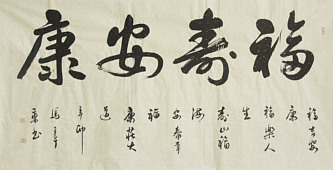 福寿安康
福吉安
康
福樂人
生
壽山福
海
安泰年
福
康莊大
道
辛卯